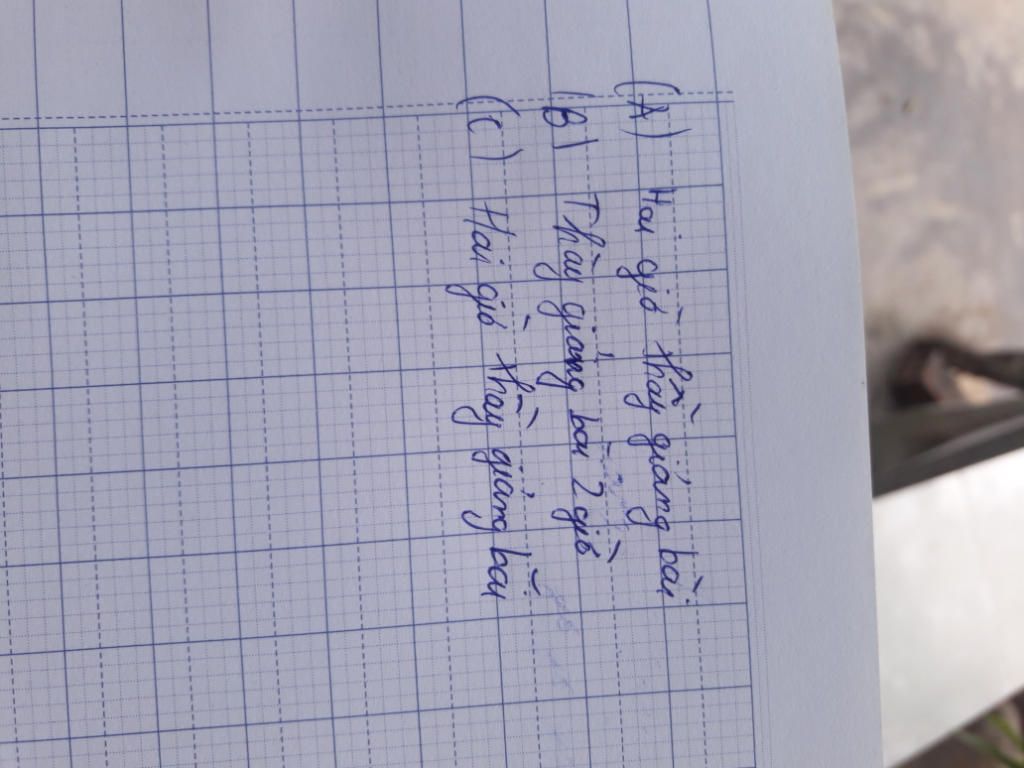 (A) Hai giờ thầy giảng bài
(B) Thầy giảng bài 2 giờ
(C) Hai giờ thầy giảng bài